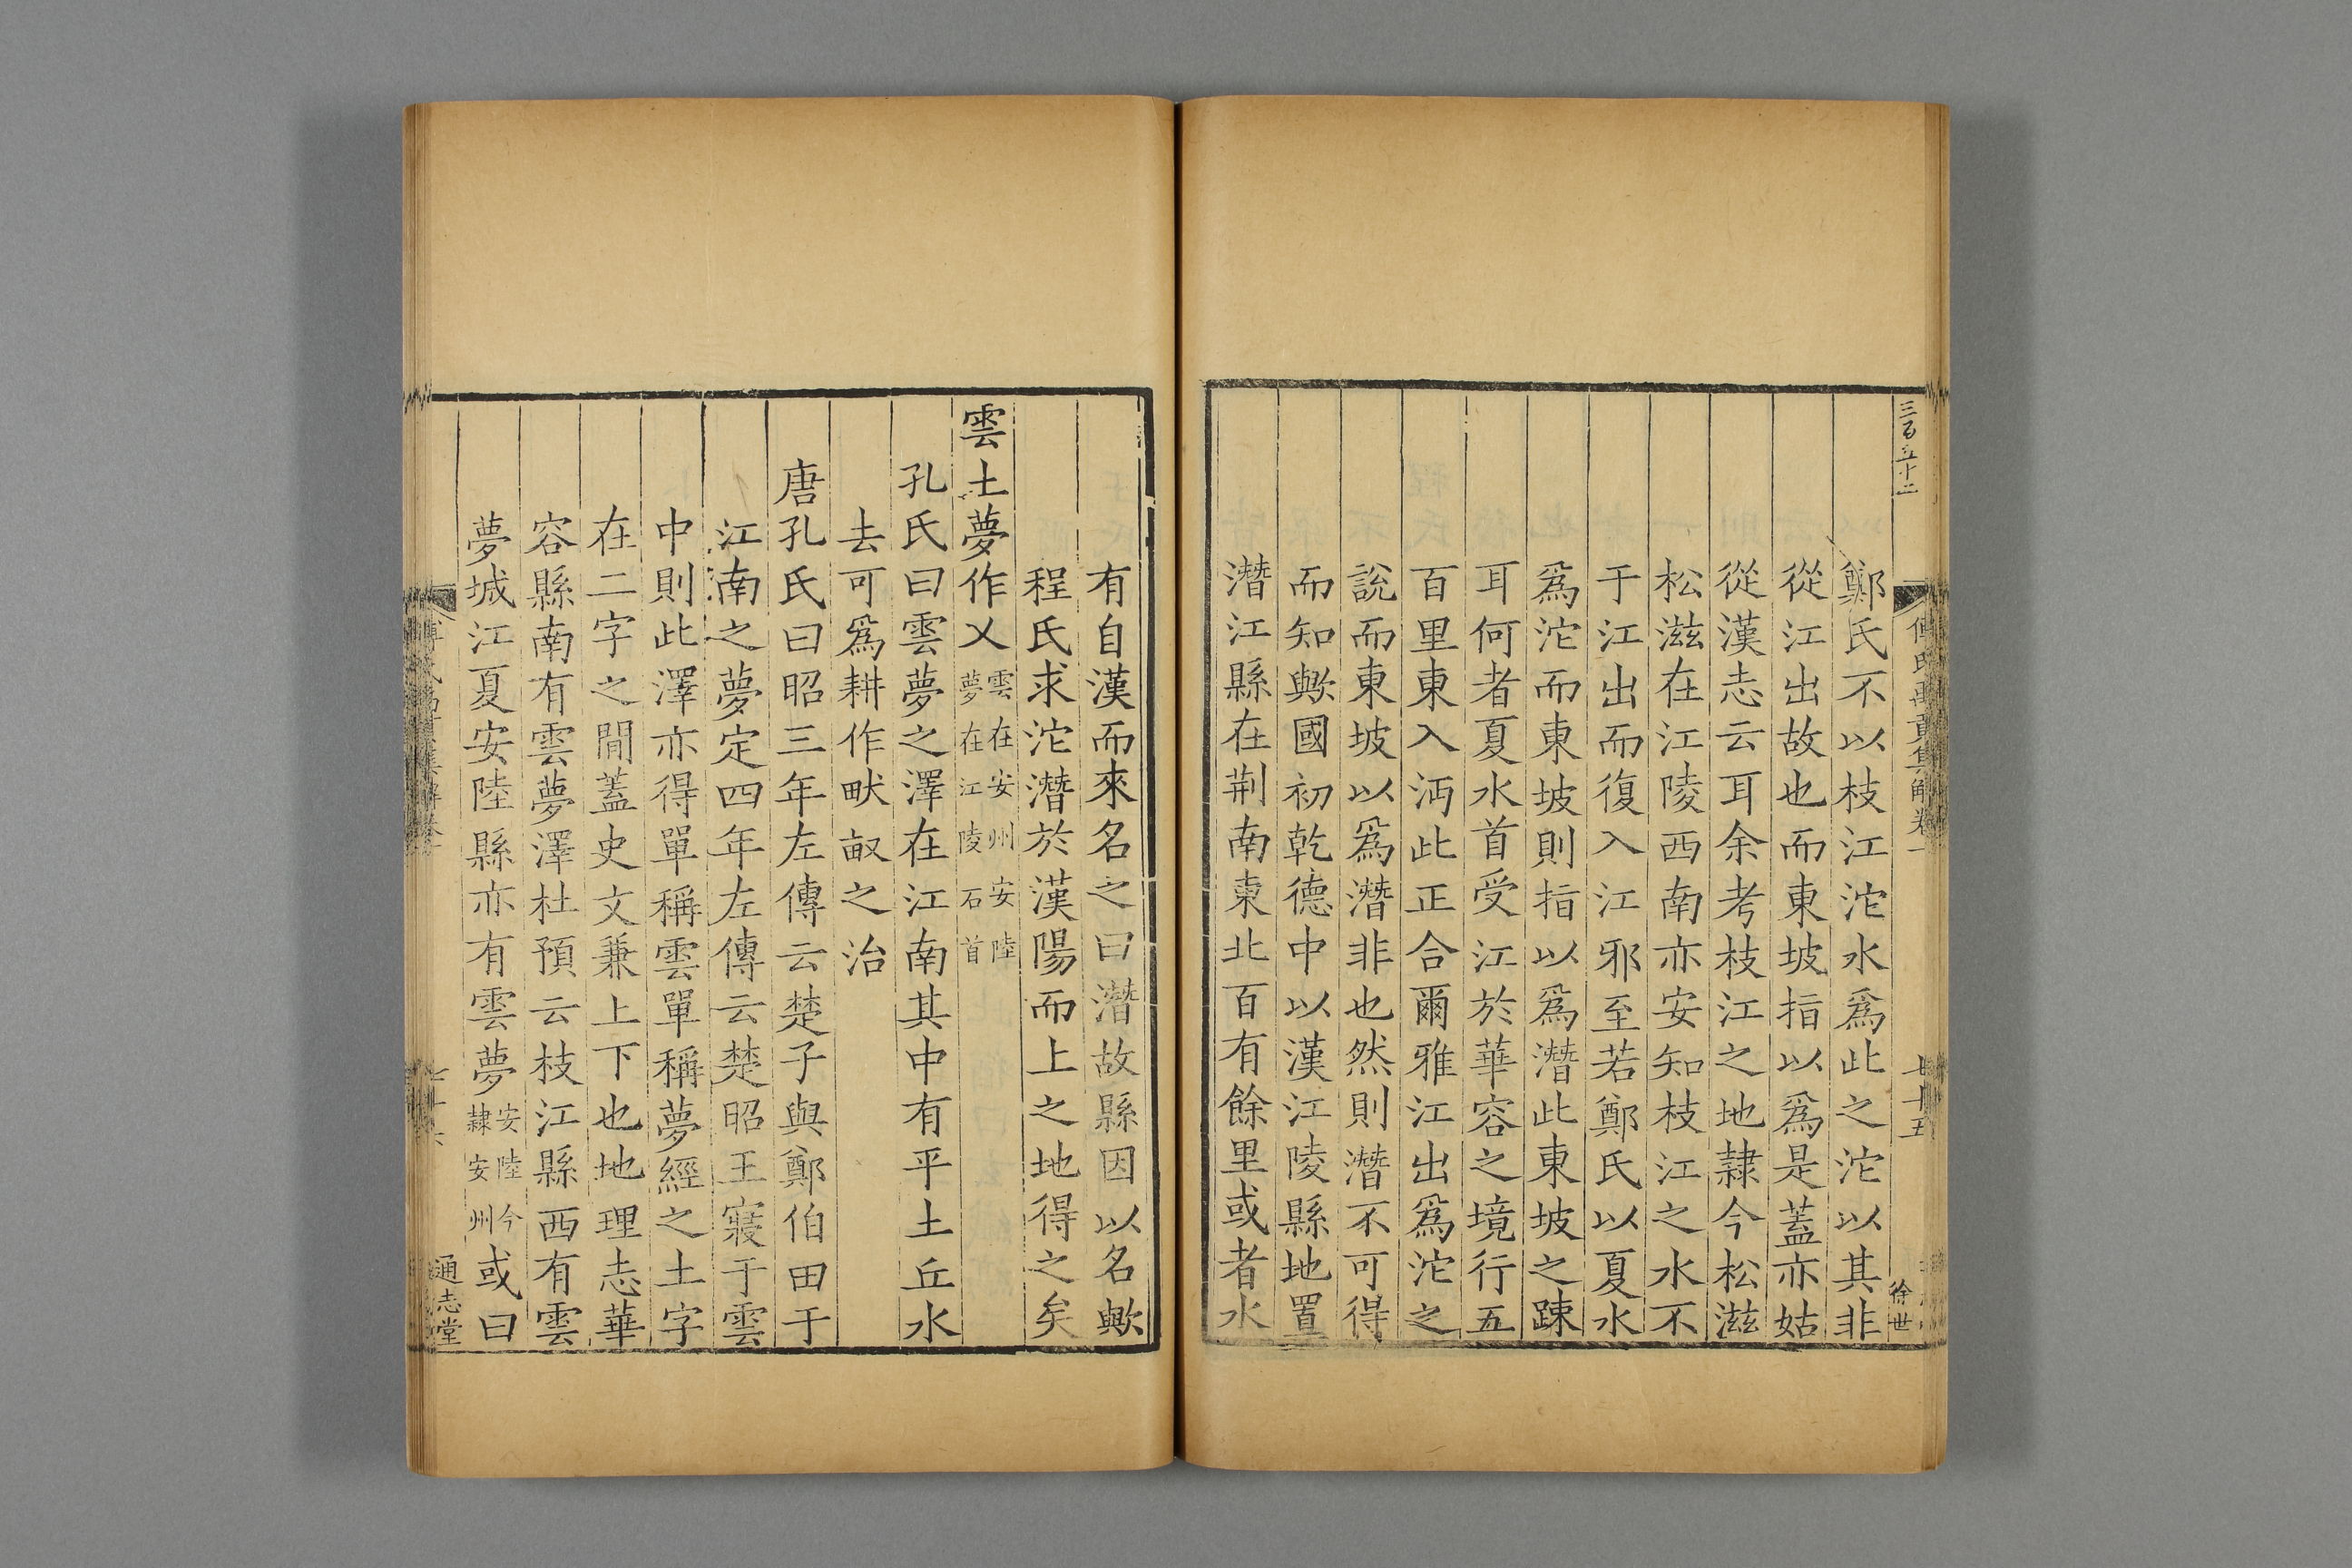 三百五十二
鄭氏不以枝江沱水爲此之沱以其非
從江出故也而東坡指以爲是蓋亦姑
從漢志云耳余考枝江之地隷今松滋
松滋在江陵西南亦安知枝江之水不
于江出而復入江邪至若鄭氏以夏水
爲沱而東坡則指以爲潛此東坡之踈
耳何者夏水首受江於華容之境行五
百里東入沔此正合爾雅江出爲沱之
說而東坡以爲潛非也然則潛不可得
而知歟國初乾德中以漢江陵縣地置
潛江縣在荆南東北百有餘里或者水
有自漢而來名之曰潛故縣因以名歟
程氏求沱潛於漢陽而上之地得之矣
雲土夢作乂雲在安州安陸夢在江陵石首
孔氏曰雲夢之澤在江南其中有平土丘水
去可爲耕作畎畝之治
唐孔氏曰昭三年左傳云楚子與鄭伯田于
江南之夢定四年左傳云楚昭王寢于雲
中則此澤亦得單稱雲單稱夢經之土字
在二字之間蓋史文兼上下也地理志華
容縣南有雲夢澤杜預云枝江縣西有雲
夢城江夏安陸縣亦有雲夢安陸今隷安州或曰
通志堂